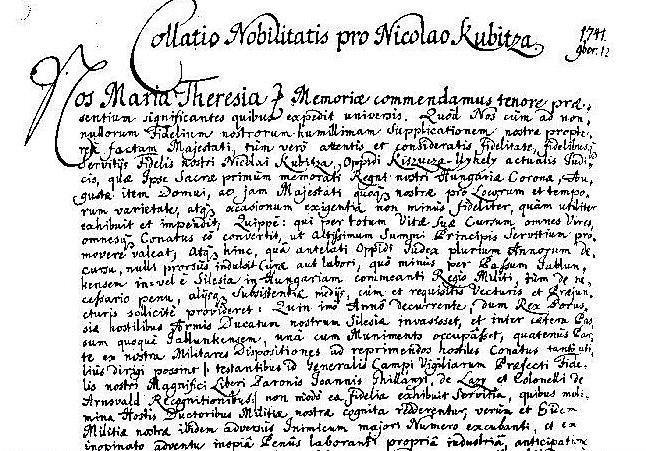 Collatio Nobilitatis pro Nicolao Kubitza.
1741
9ber. 12
Nos Maria Theresia Memoriæ commendamus tenore præ,
sentium significantes quibus expedit universis. Quod Nos cum ad non,
nullorum Fidelium nostrorum humillimam Supplicationem nostræ propte,
rea factam Majestati, tum verò attentis et consideratis Fidelitate, fidelibusq;
Servitijs Fidelis nostri Nicolai Kubitza, Oppidi Kiszucza-Ujhely actualis Judi,
cis, quæ Ipse Sacræ primùm memorati Regni nostri Hungariæ Coronæ, Au,
gustæ item Domui, ac jam Majestati quoq; nostræ pro Locorum et tempo,
rum varietate, atq; occasionum exigentia non minus fideliter, quàm utiliter
exhibuit et impendit, Quippè: qui per totum Vitæ suæ Cursum omnes Vires,
omnesq; Conatus eò convertit, ut Altissimum Summi Principis Servitium pro,
movere valeat, Atq; hinc, quà antelati Oppidi Judex plurium Annorum de,
cursu, nulli prorsus indulsit Curæ aut labori, quò minus per Passum Jablun,
kensem in vel è Silesia in Hungariam commeanti Regio Militi, tùm de ne,
cessario penu, alijsq; Subsistentiæ medijs, cum et requisitis Vecturis et Præjun,
cturis sollicitè provideret: Quin imò Annò Decurrente, dum Rex Borus,
siæ hostilibus Armis Ducatum nostrum Silesiæ invasisset, et inter cætera Pas,
sum quoque Jablunkensem, unà cum Munimento occupâsset, quatenus Par,
te ex nostra Militares Dispositiones ad reprimendos hostiles Conatus tantò uti,
liùs dirigi possint testantibus id Generalis Campi Vigiliarum Præfecti Fide,
lis nostri Magnifici Liberi Baronis Joannis Ghillanyi, de Lazy et Colonelli de
Arnsvald Recognitionibus non modò ea Fidelia exhibuit Servitia, quibus moli,
mina Hostis Ductoribus Militiæ nostræ cognita redderentur, verùm et Eidem
Militiæ nostræ ibidem adversùs Inimicum majori Numero excubanti, et ex
inopinato adventu inopiâ Penùs laboranti propriâ industriâ, anticipatione